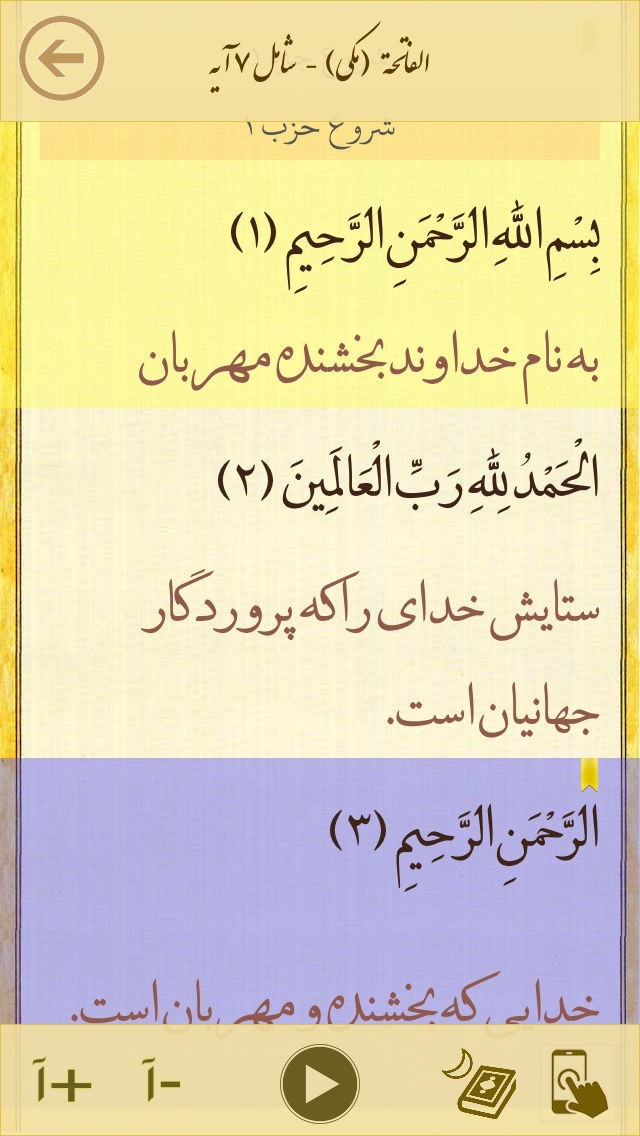 الفاتحة (مکی) - شامل ۷ آیه
شروع حزب ۱
بِسْمِ اللَّهِ الرَّحْمَنِ الرَّحِيمِ (۱)
به نام خداوند بخشنده مهربان
الْحَمْدُ لِلَّهِ رَبِّ الْعَالَمِينَ (۲)
ستایش خدای را که پروردگار
جهانیان است.
الرَّحْمَنِ الرَّحِيمِ (۳)
خدایی که بخشنده و مهربان است.
آ+ آ-